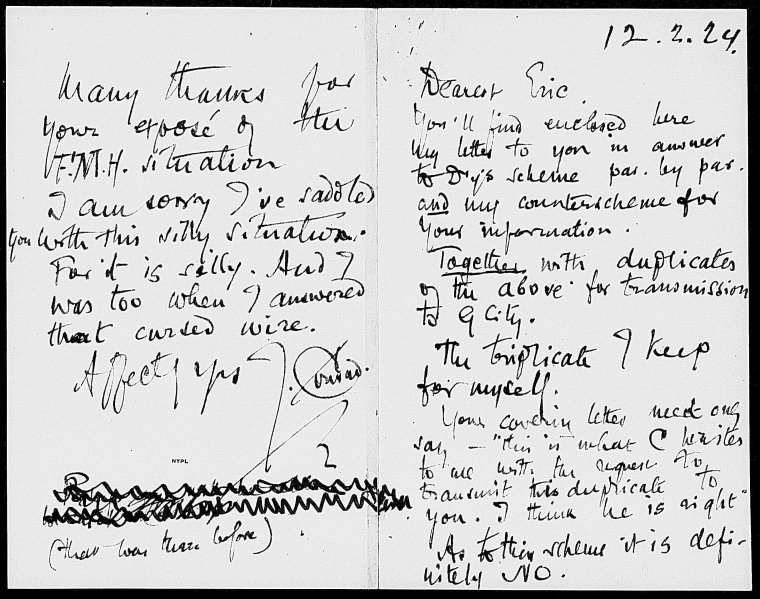 12.2.24.
Dearest Eric
You'll find enclosed here
my letter to you in answer
to D'y's scheme par. by par.
and my counterscheme for
your information.
Together with duplicates
of the above for transmission
to G City.
The triplicate I keep
for myself.
Your covering letter need only
say – "this is what C writes
to me with the request to
transmit this duplicate to
you. I think he is right"
As to their scheme it is defi-
nitely NO.
Many thanks for
your exposé of the
F.M.H. situation
I am sorry I've saddled
you with this silly situation.
For it is silly. And I
was too when I answered
that cursed wire.
Affectly yrs J. Conrad.
NYPL
2
(that was there before)